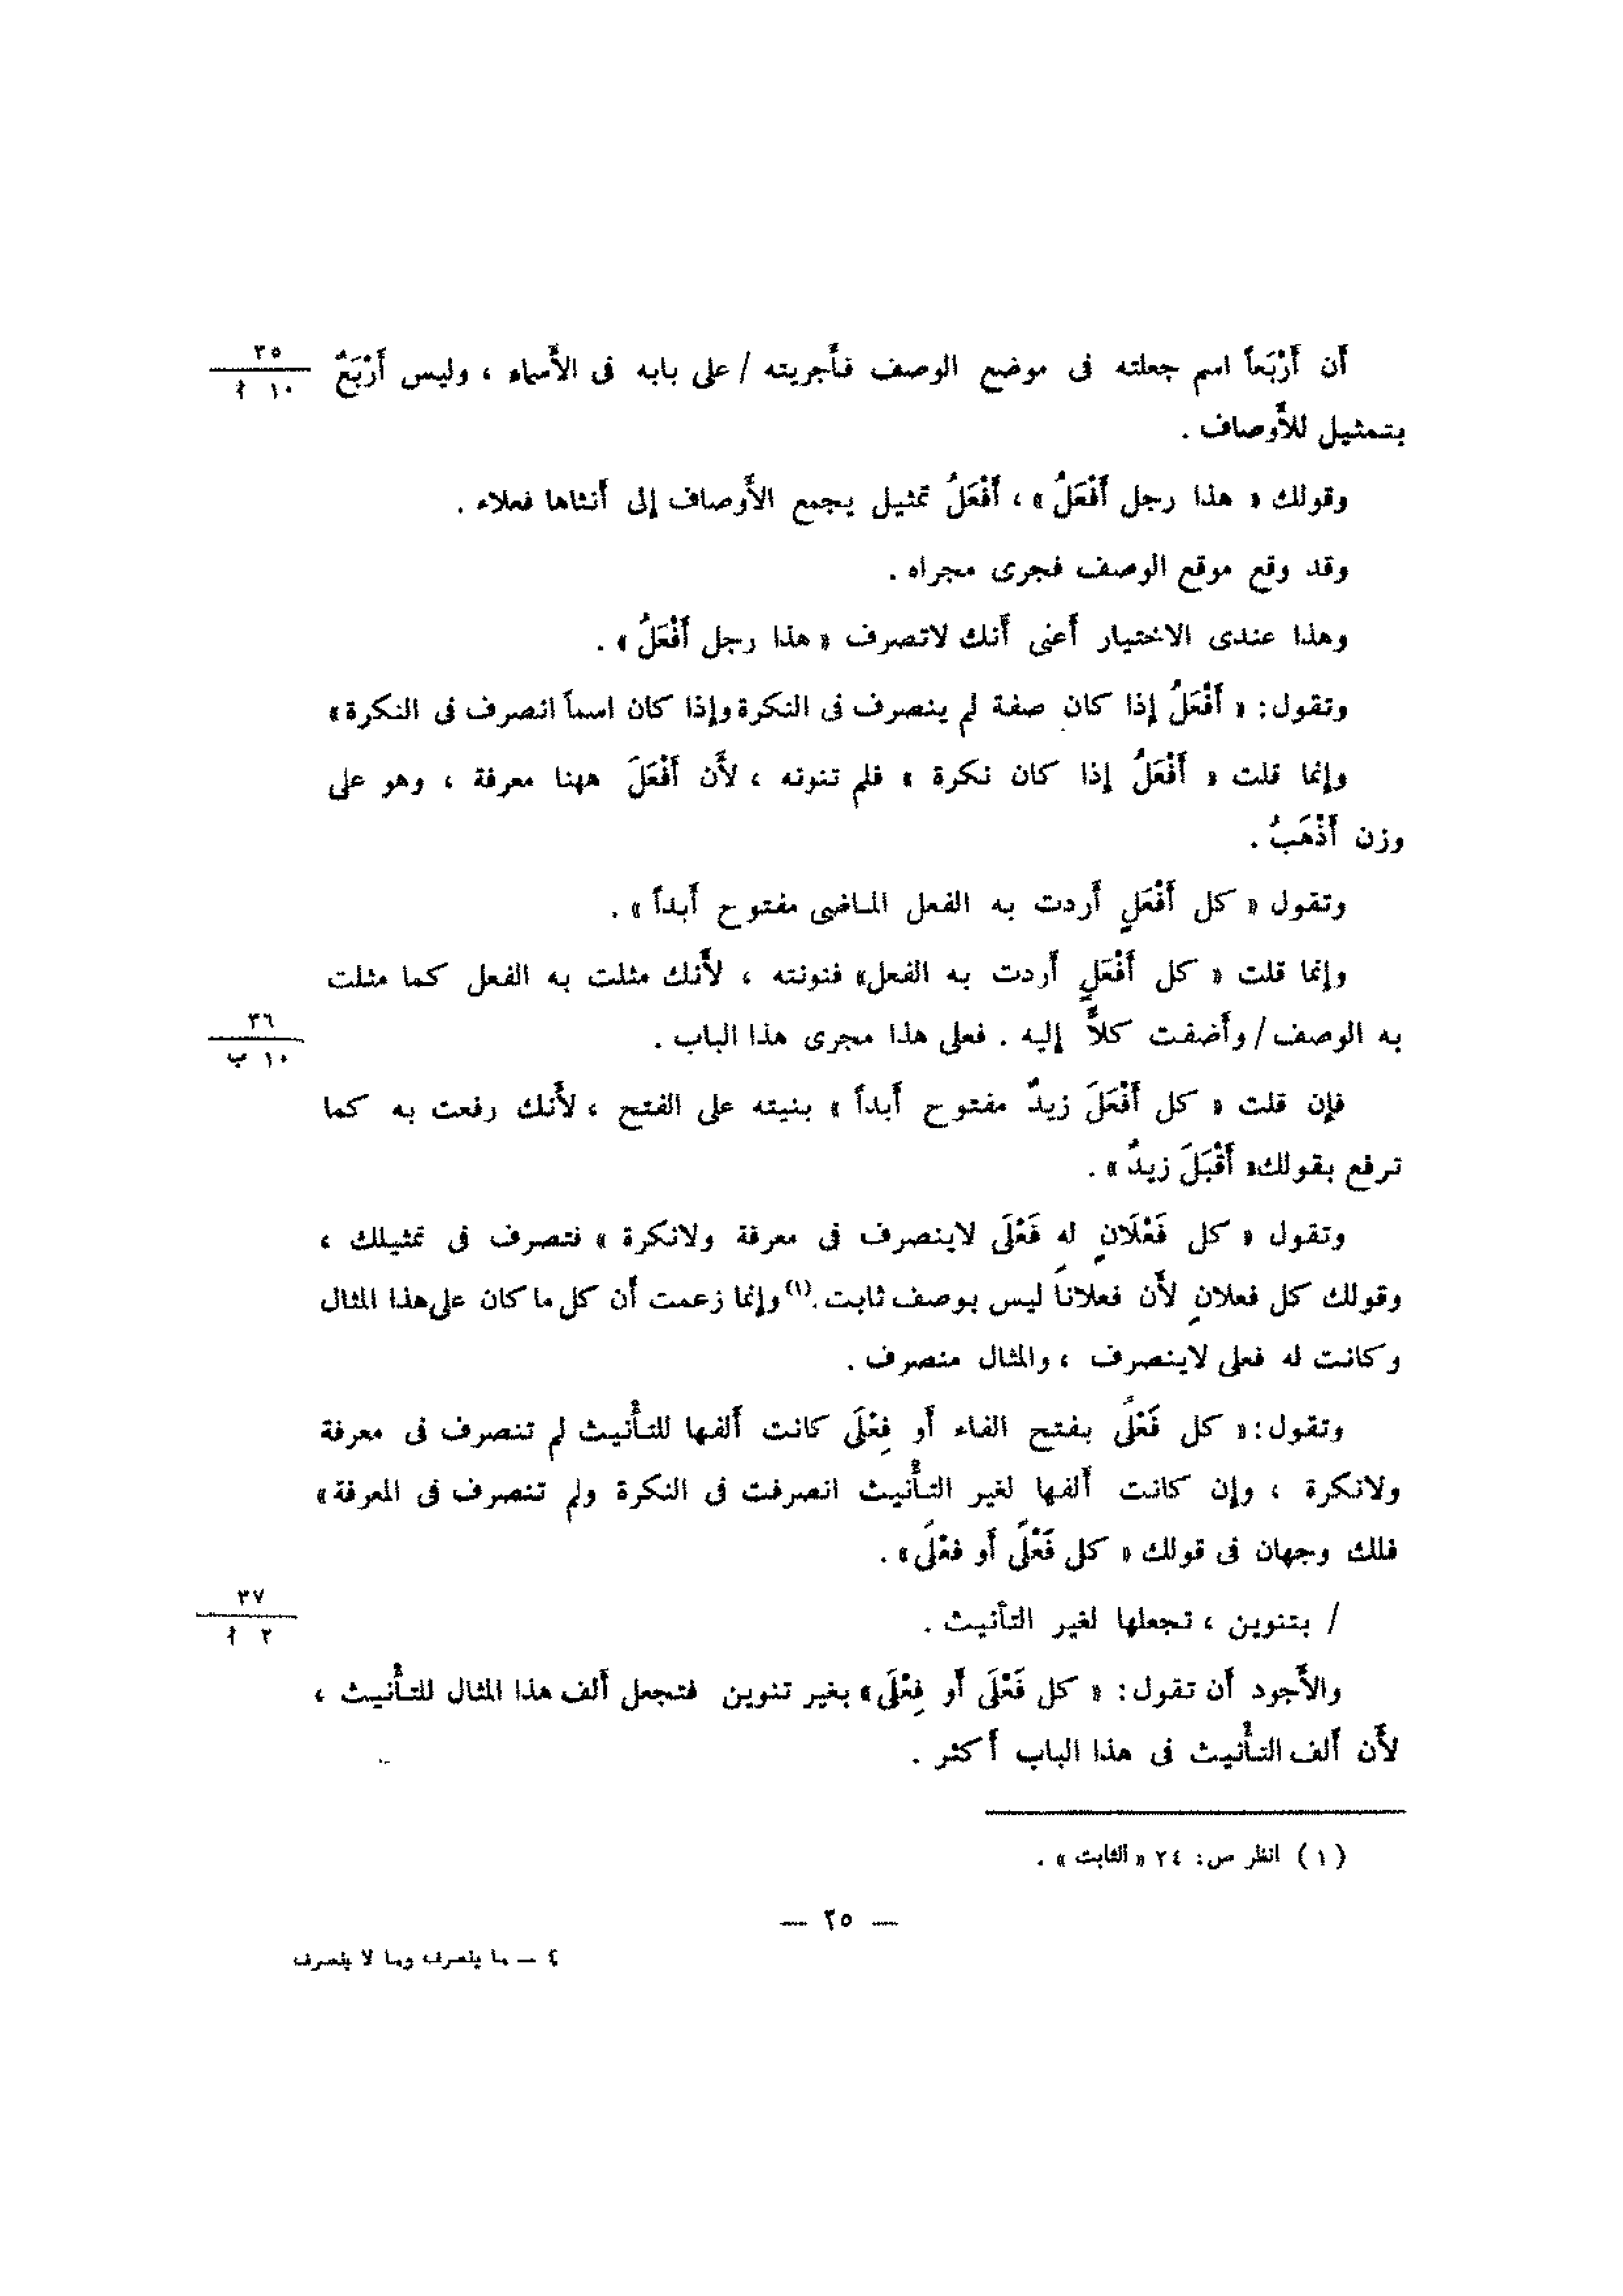 أن أَرْبَعاً اسم جعلته فى موضع الوصف فأجريته / على بابه فى الأسماء ، وليس أَرْبَعٌ
٣٥
١٠ أ
بتمثيل للأوصاف .
وقولك « هذا رجل أَفْعَلُ » ، أَفْعَلُ تمثيل يجمع الأوصاف إلى أنثاها فعلاء .
وقد وقع موقع الوصف فجرى مجراه .
وهذا عندى الاختيار أعنى أنك لاتصرف « هذا رجل أَفْعَلُ » .
وتقول : « أَفْعَلُ إذا كان صفة لم ينصرف فى النكرة وإذا كان اسماً انصرف فى النكرة »
وإنما قلت « أَفْعَلُ إذا كان نكرة » فلم تنونه ، لأن أَفْعَلَ ههنا معرفة ، وهو على
وزن أَذْهَبُ .
وتقول « كل أَفْعَلٍ أردت به الفعل الماضى مفتوح أبداً » .
وإنما قلت « كل أَفْعَلٍ أردت به الفعل» فنونته ، لأنك مثلت به الفعل كما مثلت
به الوصف / وأضفت كلاًّ إليه . فعلى هذا مجرى هذا الباب .
٣٦
١٠ ب
فإن قلت « كل أَفْعَلَ زيدٌ مفتوح أبداً » بنيته على الفتح ، لأنك رفعت به كما
ترفع بقولك« أَقْبَلَ زيدٌ » .
وتقول « كل فَعْلَانٍ له فَعْلَى لاينصرف فى معرفة ولانكرة » فتصرف فى تمثيلك ،
وقولك كل فعلانٍ لأن فعلاناً ليس بوصف ثابت .(١) وإنما زعمت أن كل ما كان على هذا المثال
وكانت له فعلى لاينصرف ، والمثال منصرف .
وتقول : « كل فَعْلًى بفتح الفاء أو فِعْلَى كانت ألفها للتأنيث لم تنصرف فى معرفة
ولانكرة ، وإن كانت ألفها لغير التأنيث انصرفت فى النكرة ولم تنصرف فى المعرفة »
فلك وجهان فى قولك « كل فَعْلًى أو فعْلًى» .
/ بتنوين ، تجعلها لغير التأنيث .
٣٧
٢ أ
والأجود أن تقول : « كل فَعْلَى أو فِعْلَى» بغير تنوين فتجعل ألف هذا المثال للتأنيث ،
لأن ألف التأنيث فى هذا الباب أكثر .
(١) انظر ص: ٢٤ « الثابت » .
— ٢٥ —
٤ — ما ينصرف وما لا ينصرف